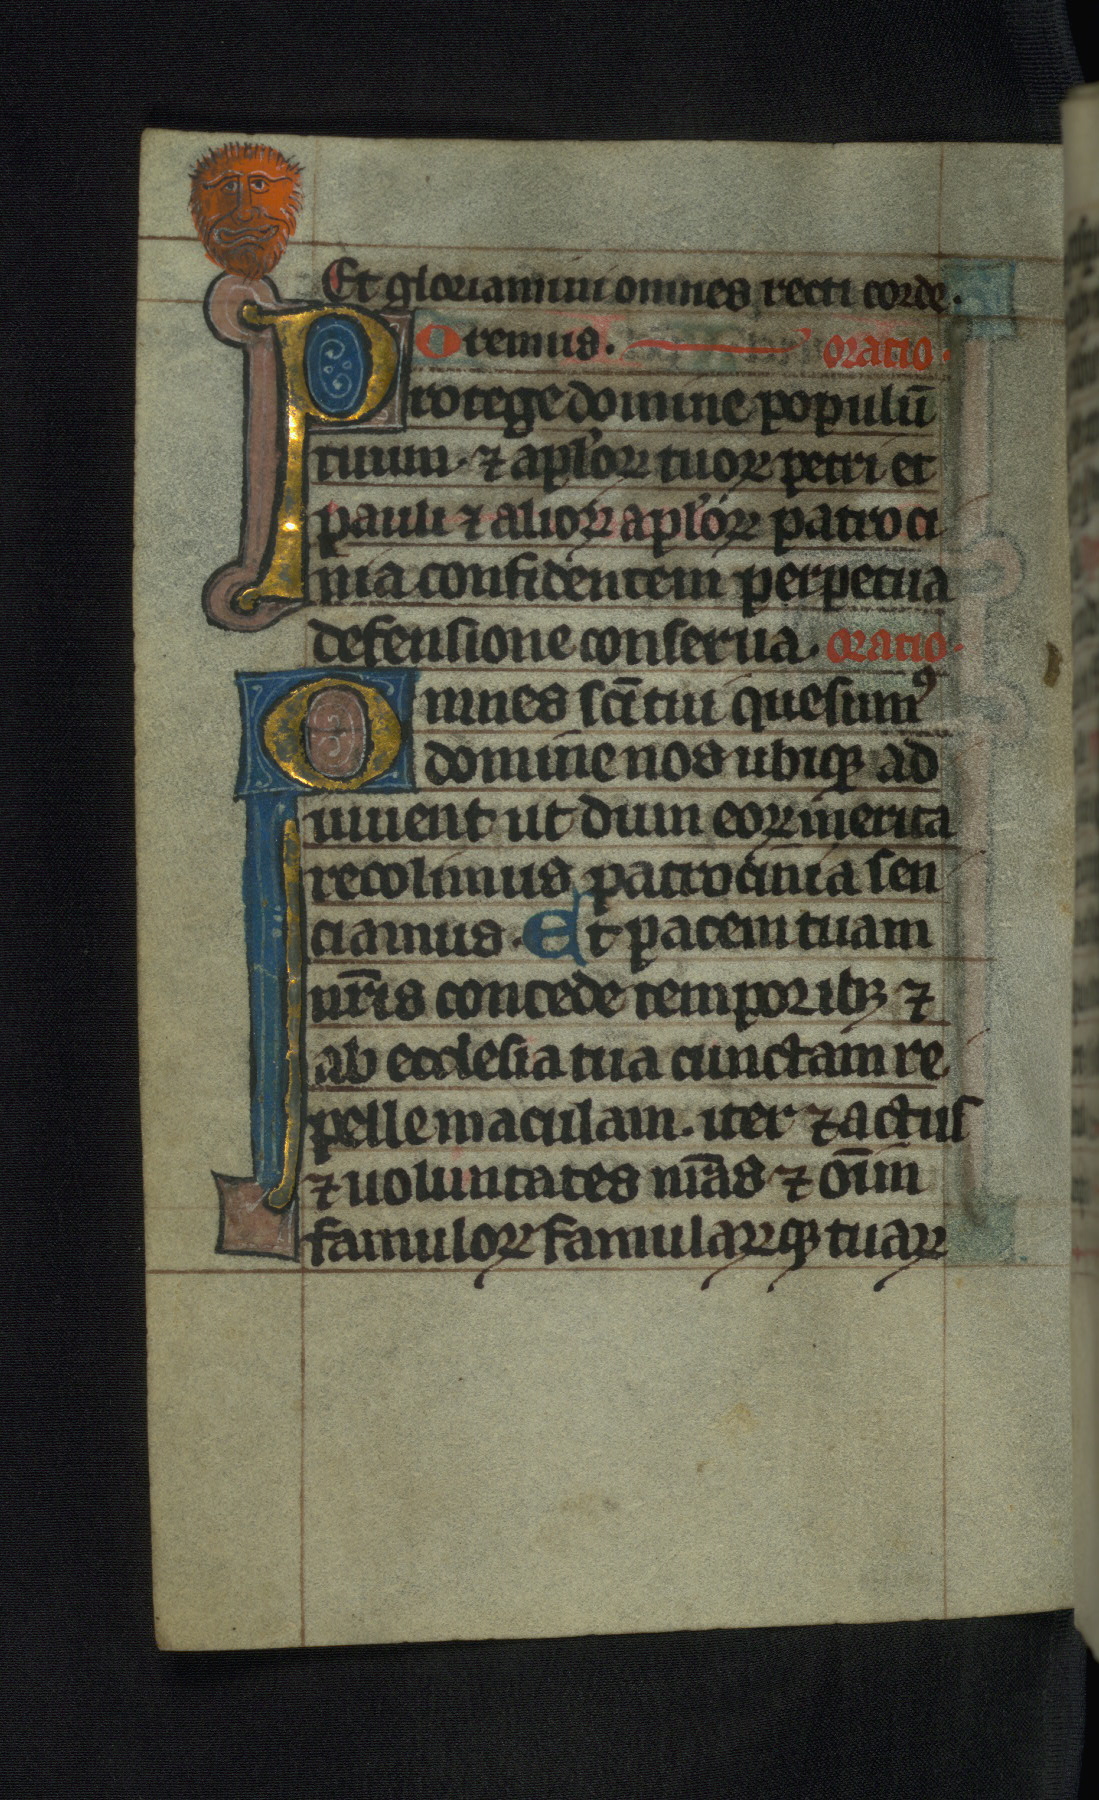 Et gloriamini omnes recti corde.
Oremus. oratio.
Protege domine populū
tuum. ⁊ apl'oꝝ tuoꝝ petri et
pauli ⁊ alioꝝ apl'oꝝ patroci
nia confidentem perpetua
defensione conserua. oratio.
Omnes sc̄i tui quesumꝰ
domine nos ubiqꝫ ad
iuuent ut dum eoꝝ merita
recolimus patrocinia sen
ciamus. Et pacem tuam
nr̄is concede temporibꝫ ⁊
ab ecclesia tua cunctam re
pelle maculam. iter ⁊ actus
⁊ uoluntates nr̄as ⁊ om̄im
famuloꝝ famulaꝝqꝫ tuaꝝ